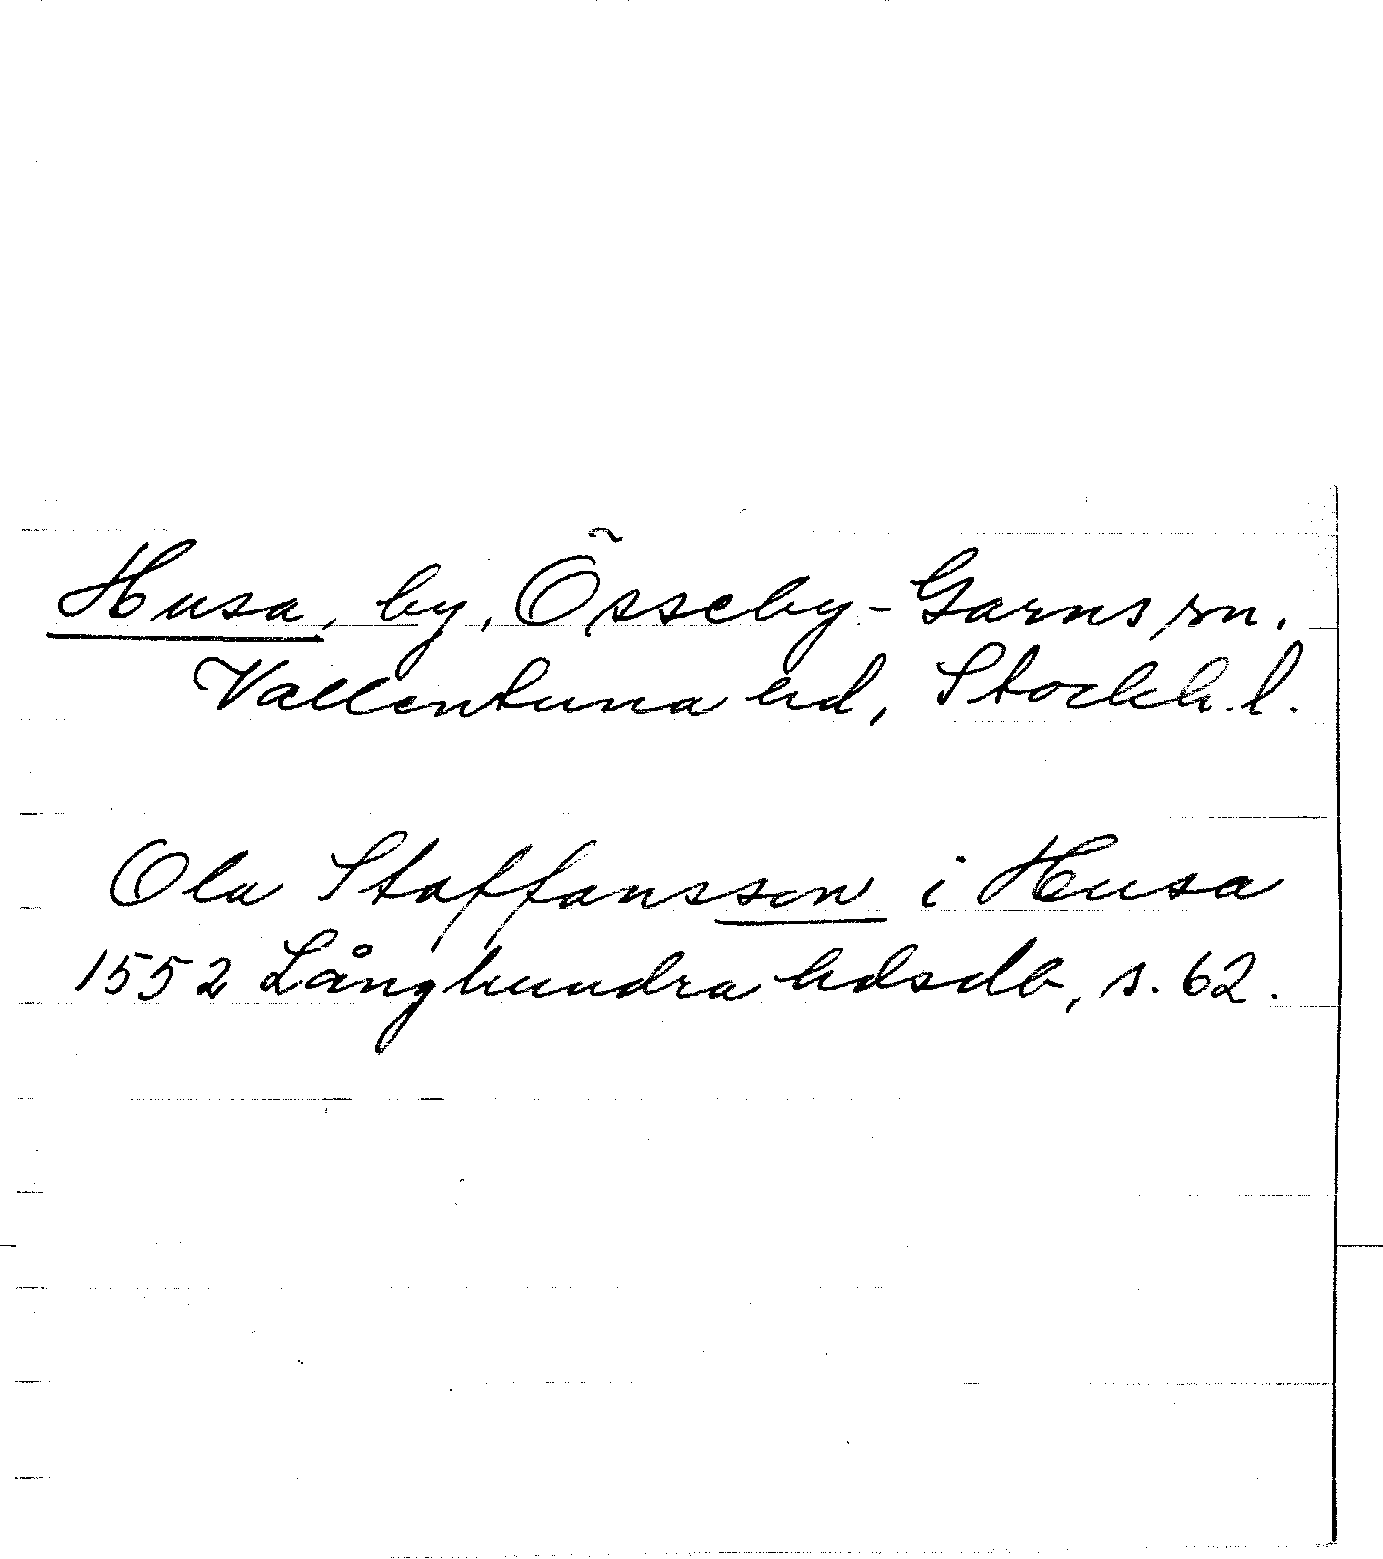 Husa, by, Össeby-Garns sn.
Vallentuna hd, Stockh. l.
Ola Staffansson i Husa
1552 Långhundra hdsdb, s. 62.